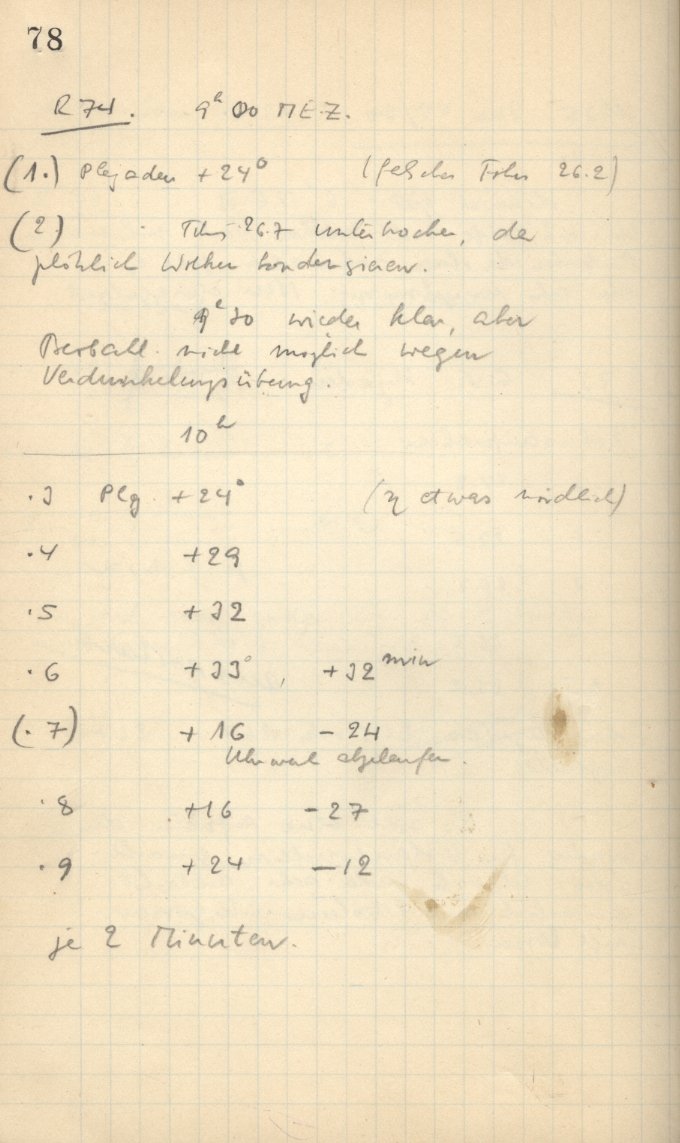 78
R 74. 9h 00 MEZ.
(1.) Plejaden +24° (falscher 26.2)
(2) 26.7 unterbrochen, da
plötzlich Wolken
9h 30 wieder klar, aber
Beobacht. nicht möglich wegen
Verdunkelungsübung.
10h
.3 Plej. +24° (η etwas nördlich)
.4 +29
.5 +32
.6 +33°, +32 min
(.7) +16 -24
Uhrwerk abgelaufen.
.8 +16 -27
.9 +24 -12
je 2 Minuten.